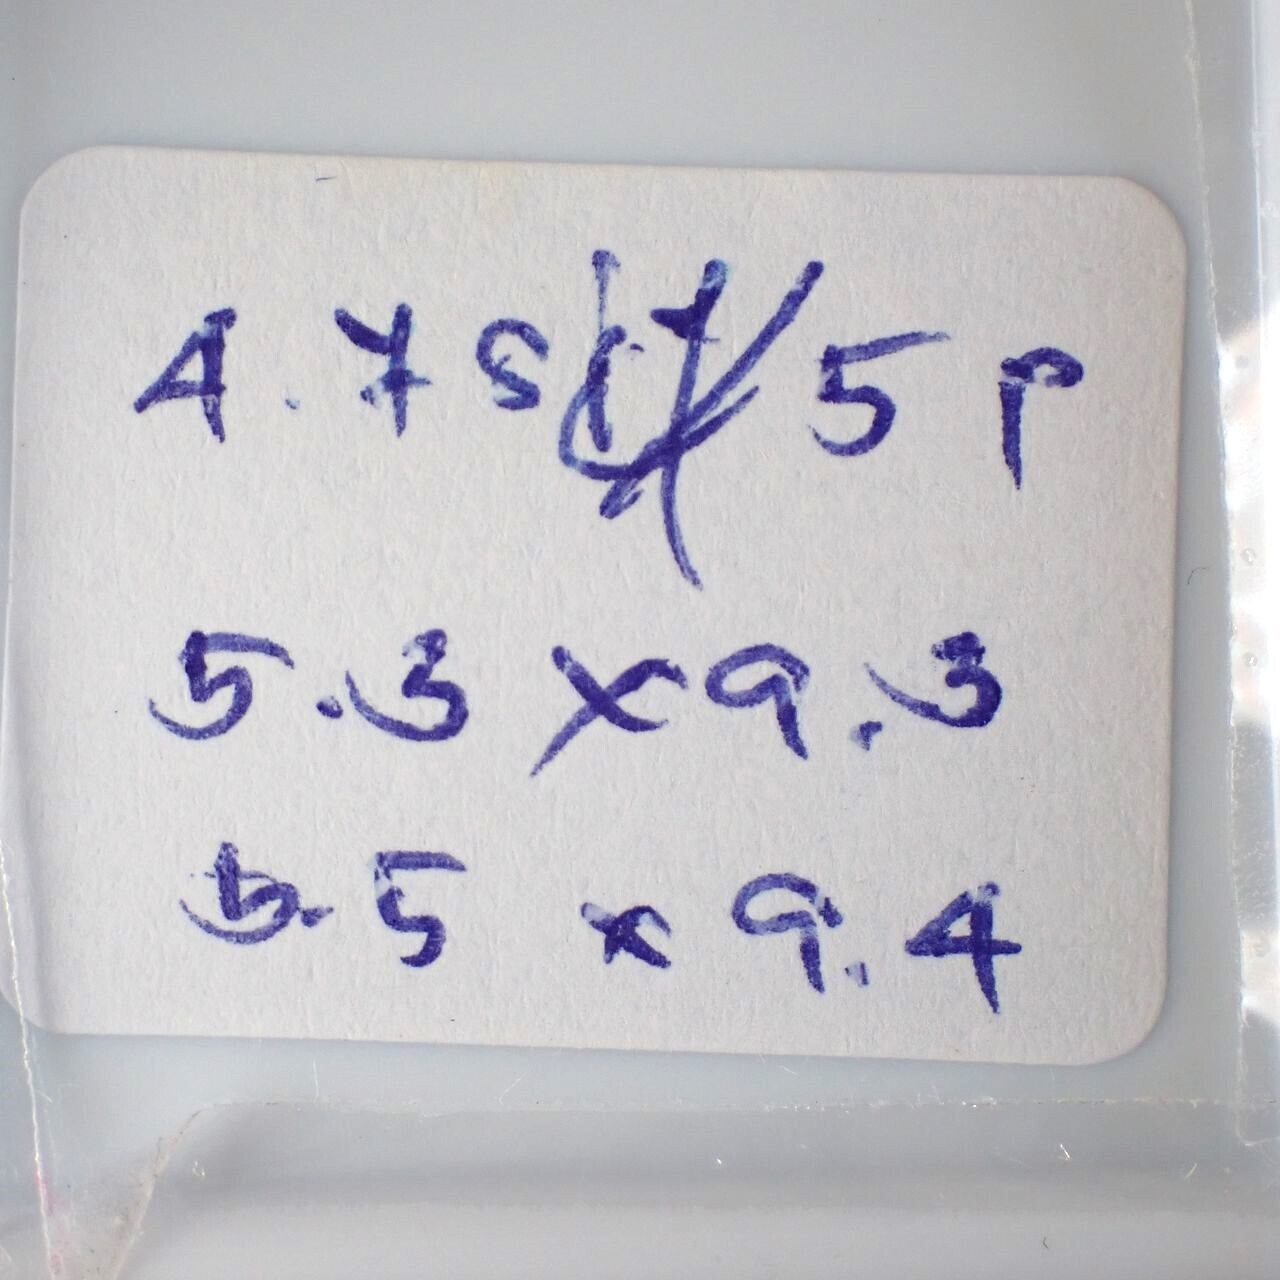 4.78 ct/5P
5.3 x 9.3
5.5 x 9.4